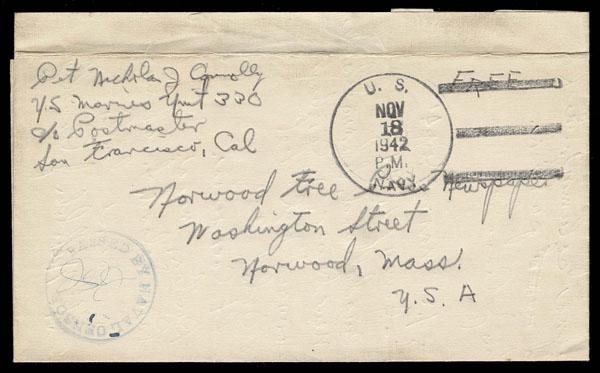 Pvt Nicholas J Connolly
U.S. Marines Unit 330
c/o Postmaster
San Francisco, Cal
U. S.
NOV
18
1942
P.M.
NAVY
FREE
Norwood Free Press Newspaper
Washington Street
Norwood, Mass.
U.S.A
PASSED BY NAVAL CENSOR